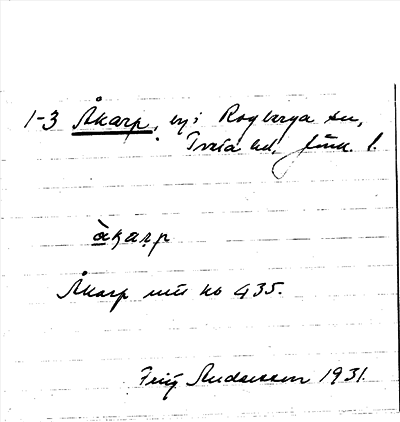 1-3 Åkarp, by i Rogberga sn,
Tveta hd, Jönk. l.
åkarp
Åkarp nu kb 435.
Fritz Andersson 1931.